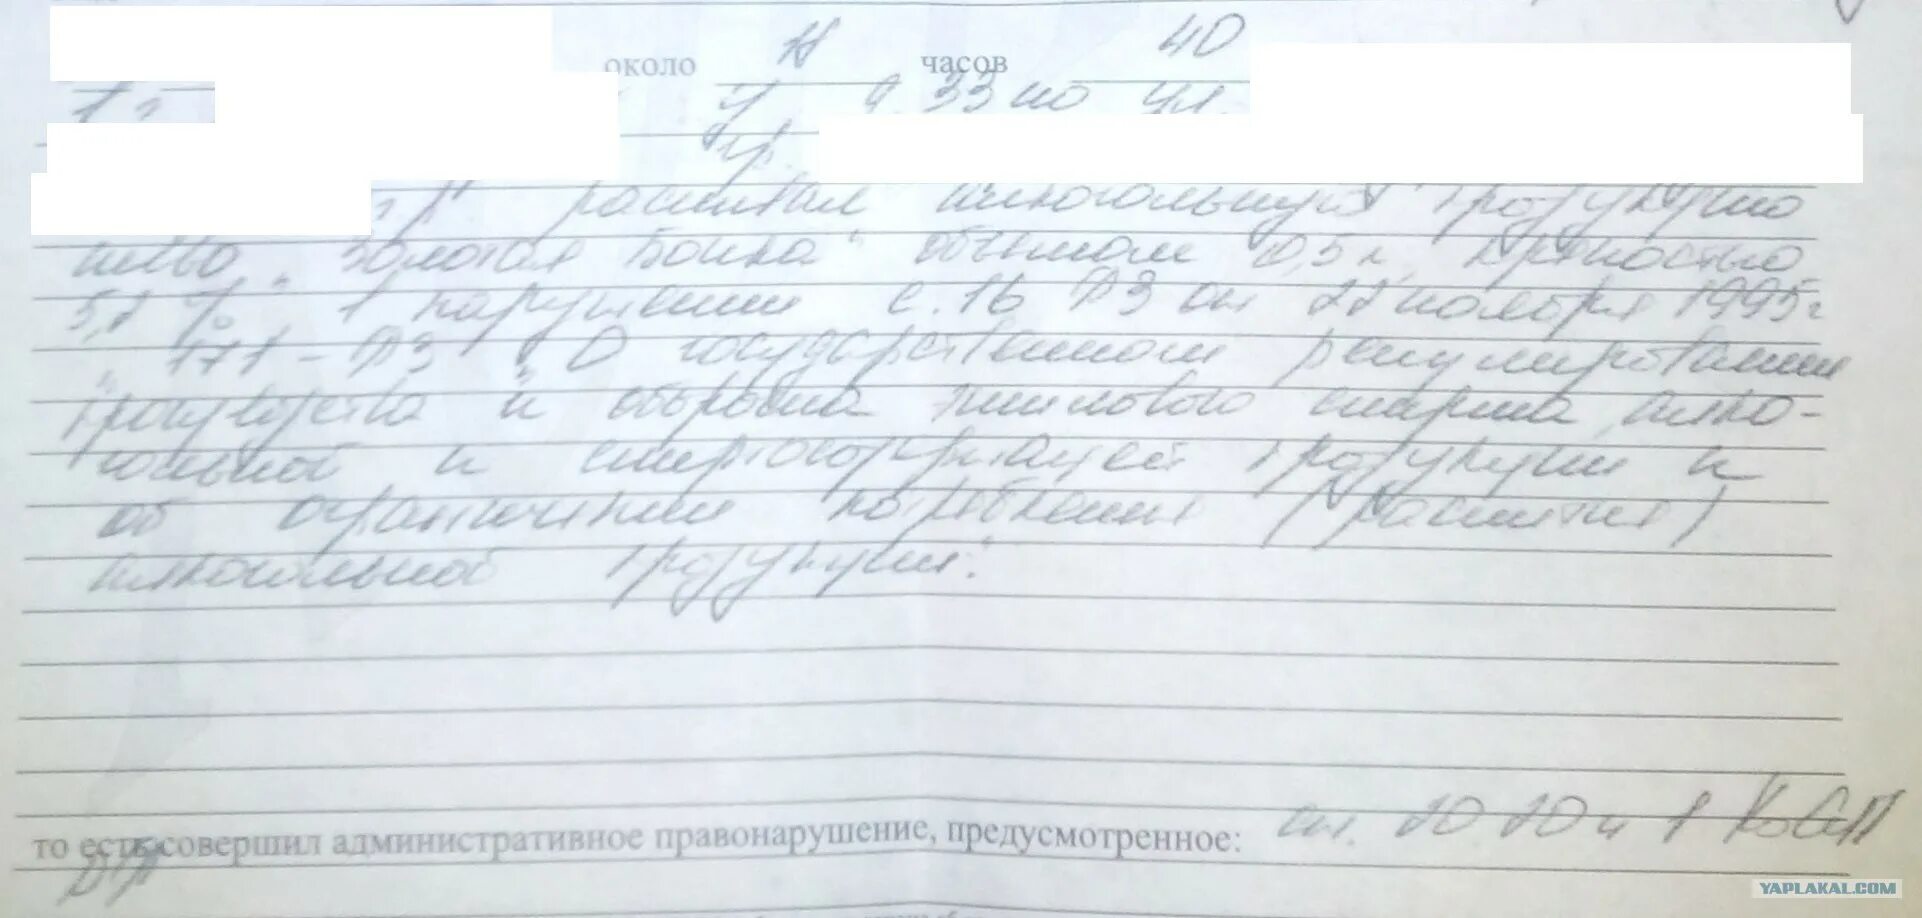 около часов 40
у д. 33 по ул.
гр.
распивал алкогольную продукцию
пиво "Золотая Бочка" объемом 0,5 л, крепостью
% в нарушении с. 16 ФЗ от 22 ноября 1995 г
171-ФЗ "О государственном регулировании
производства и оборота этилового спирта, алко-
гольной и спиртосодержащей продукции и
об ограничении потребления (распития)
алкогольной продукции".
то есть совершил административное правонарушение, предусмотренное: ст. 20 20 ч 1 КоАП
РФ
YAPLAKAL.COM